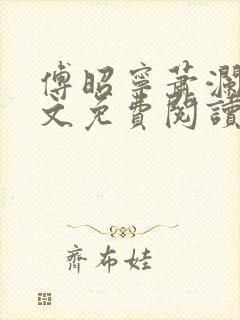 傅昭寧蕭瀾
文免費閱讀
齊布娃